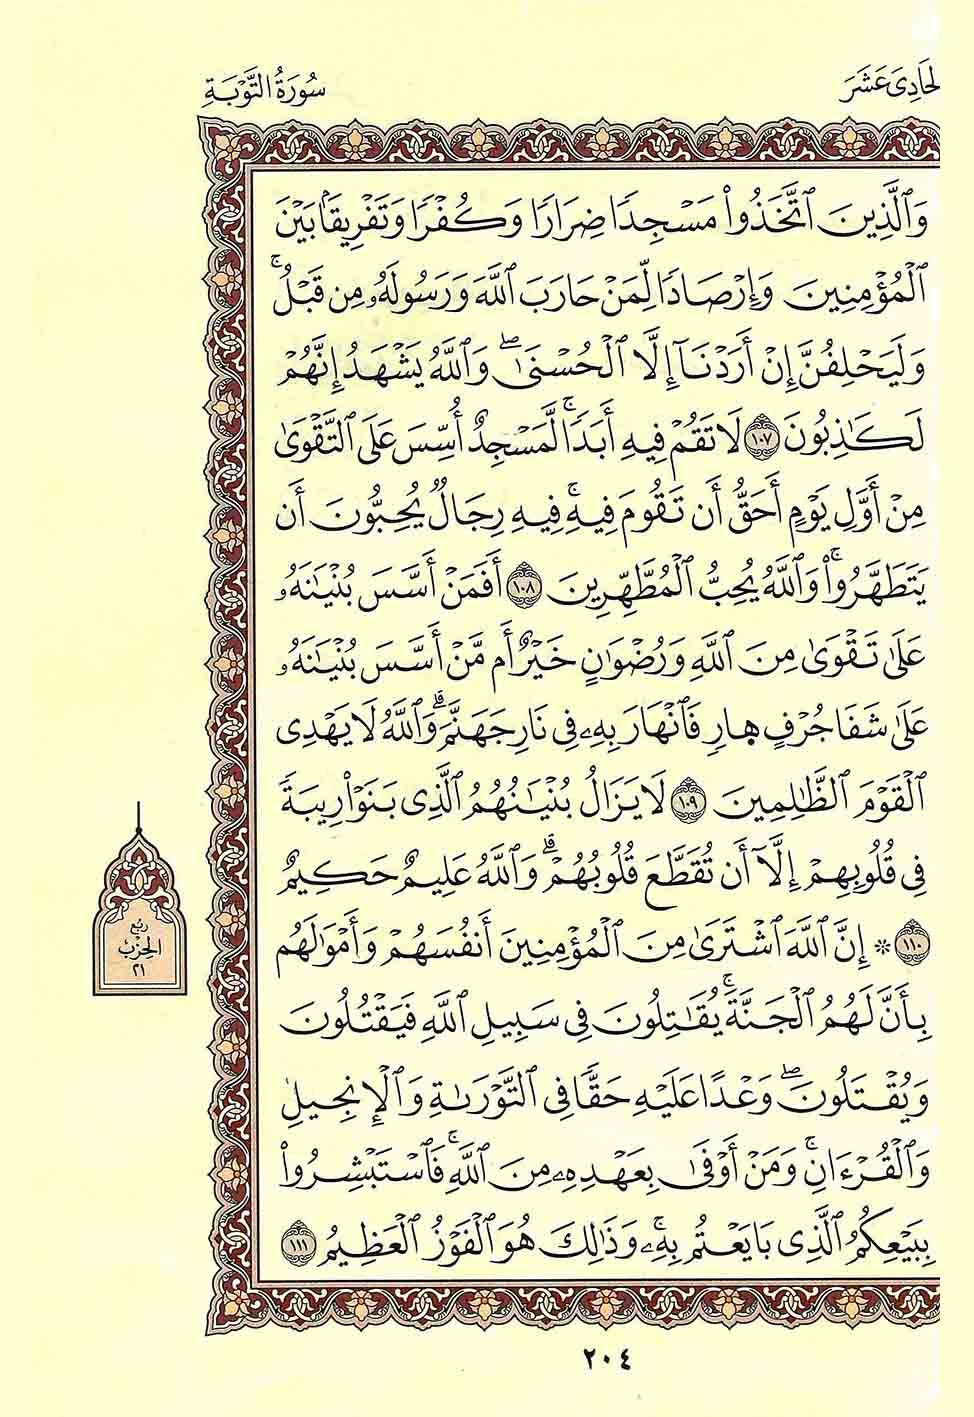 لحَادِىَ عَشَرَ
سُورَةُ التَّوْبَةِ
وَٱلَّذِينَ ٱتَّخَذُوا۟ مَسْجِدًا ضِرَارًا وَكُفْرًا وَتَفْرِيقًۢا بَيْنَ
ٱلْمُؤْمِنِينَ وَإِرْصَادًا لِّمَنْ حَارَبَ ٱللَّهَ وَرَسُولَهُۥ مِن قَبْلُ ۚ
وَلَيَحْلِفُنَّ إِنْ أَرَدْنَآ إِلَّا ٱلْحُسْنَىٰ ۖ وَٱللَّهُ يَشْهَدُ إِنَّهُمْ
لَكَـٰذِبُونَ ١٠٧ لَا تَقُمْ فِيهِ أَبَدًا ۚ لَّمَسْجِدٌ أُسِّسَ عَلَى ٱلتَّقْوَىٰ
مِنْ أَوَّلِ يَوْمٍ أَحَقُّ أَن تَقُومَ فِيهِ ۚ فِيهِ رِجَالٌ يُحِبُّونَ أَن
يَتَطَهَّرُوا۟ ۚ وَٱللَّهُ يُحِبُّ ٱلْمُطَّهِّرِينَ ١٠٨ أَفَمَنْ أَسَّسَ بُنْيَـٰنَهُۥ
عَلَىٰ تَقْوَىٰ مِنَ ٱللَّهِ وَرِضْوَٰنٍ خَيْرٌ أَم مَّنْ أَسَّسَ بُنْيَـٰنَهُۥ
عَلَىٰ شَفَا جُرُفٍ هَارٍ فَٱنْهَارَ بِهِۦ فِى نَارِ جَهَنَّمَ ۗ وَٱللَّهُ لَا يَهْدِى
ٱلْقَوْمَ ٱلظَّـٰلِمِينَ ١٠٩ لَا يَزَالُ بُنْيَـٰنُهُمُ ٱلَّذِى بَنَوْا۟ رِيبَةً
فِى قُلُوبِهِمْ إِلَّآ أَن تَقَطَّعَ قُلُوبُهُمْ ۗ وَٱللَّهُ عَلِيمٌ حَكِيمٌ
١١٠ * إِنَّ ٱللَّهَ ٱشْتَرَىٰ مِنَ ٱلْمُؤْمِنِينَ أَنفُسَهُمْ وَأَمْوَٰلَهُم
بِأَنَّ لَهُمُ ٱلْجَنَّةَ ۚ يُقَـٰتِلُونَ فِى سَبِيلِ ٱللَّهِ فَيَقْتُلُونَ
وَيُقْتَلُونَ ۖ وَعْدًا عَلَيْهِ حَقًّا فِى ٱلتَّوْرَىٰةِ وَٱلْإِنجِيلِ
وَٱلْقُرْءَانِ ۚ وَمَنْ أَوْفَىٰ بِعَهْدِهِۦ مِنَ ٱللَّهِ ۚ فَٱسْتَبْشِرُوا۟
بِبَيْعِكُمُ ٱلَّذِى بَايَعْتُم بِهِۦ ۚ وَذَٰلِكَ هُوَ ٱلْفَوْزُ ٱلْعَظِيمُ ١١١
رُبْع
الحِزْب
٢١
٢٠٤